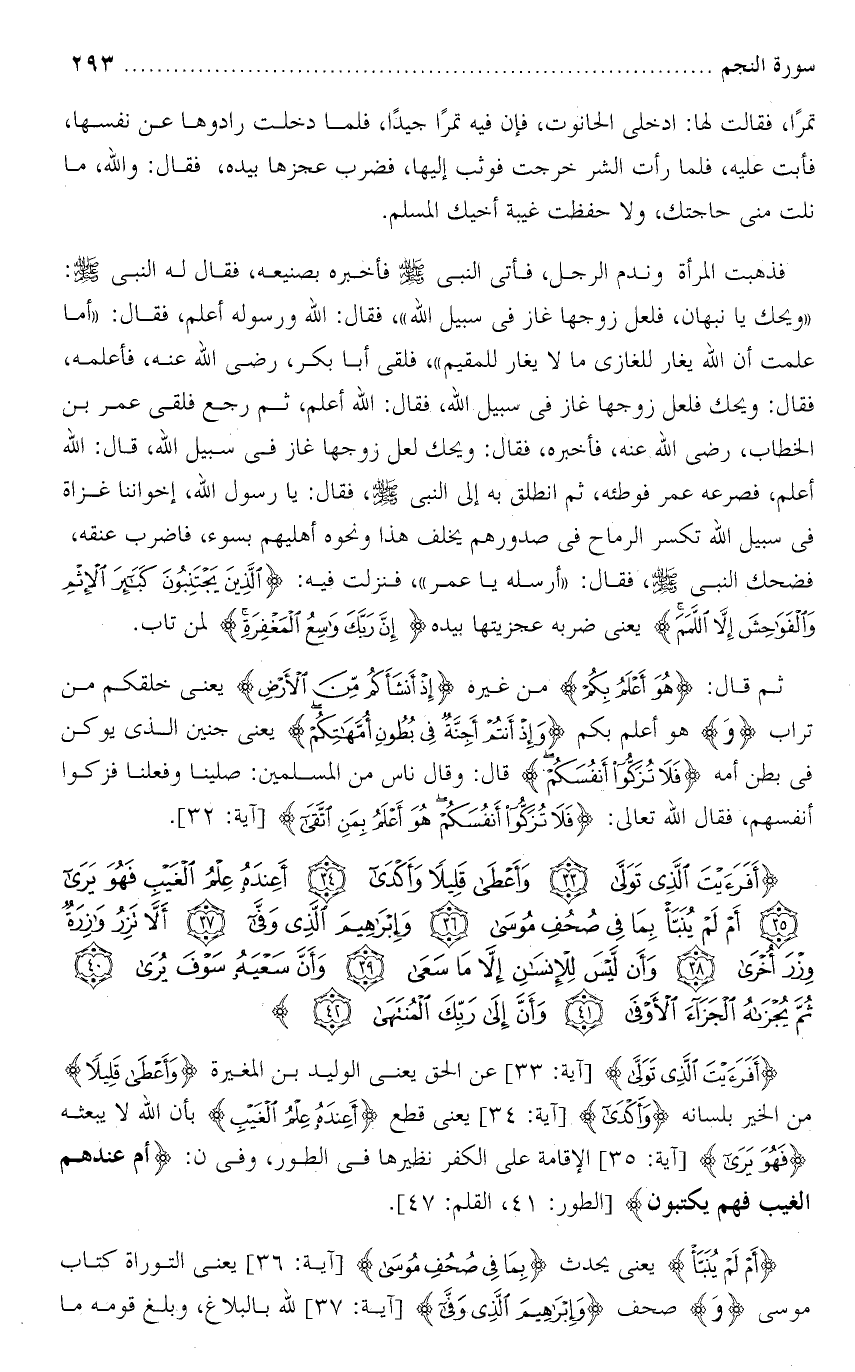 سورة النجم ........................................................................ ٢٩٣
تمرًا، فقالت لها: ادخلى الحانوت، فإن فيه تمرًا جيدًا، فلمـا دخلـت رادوهـا عـن نفسـها،
فأبت عليه، فلما رأت الشر خرجت فوثب إليها، فضرب عجزها بيده، فقـال: والله، مـا
نلت منى حاجتك، ولا حفظت غيبة أخيك المسلم.
فذهبت المرأة وندم الرجـل، فـأتى النبـى ﷺ فأخـبره بصنيعـه، فقـال لـه النبـى ﷺ:
«ويحك يا نبهان، فلعل زوجها غاز فى سبيل الله»، فقال: الله ورسوله أعلم، فقـال: «أمـا
علمت أن الله يغار للغازى ما لا يغار للمقيم»، فلقى أبـا بكـر، رضـى الله عنـه، فأعلمـه،
فقال: ويحك فلعل زوجها غاز فى سبيل الله، فقال: الله أعلم، ثـم رجـع فلقـى عمـر بـن
الخطاب، رضى الله عنه، فأخبره، فقال: ويحك لعل زوجها غاز فـى سـبيل الله، قـال: الله
أعلم، فصرعه عمر فوطئه، ثم انطلق به إلى النبى ﷺ، فقال: يا رسول الله، إخواننا غـزاة
فى سبيل الله تكسر الرماح فى صدورهم يخلف هذا ونحوه أهليهم بسوء، فاضرب عنقه،
فضحك النبـى ﷺ، فقـال: «أرسله يـا عمـر»، فـنزلت فيـه: ﴿ٱلَّذِينَ يَجْتَنِبُونَ كَبَٰٓئِرَ ٱلْإِثْمِ
وَٱلْفَوَٰحِشَ إِلَّا ٱللَّمَمَۚ﴾ يعنى ضربه عجزيتها بيده ﴿إِنَّ رَبَّكَ وَٰسِعُ ٱلْمَغْفِرَةِۚ﴾ لمن تاب.
ثـم قـال: ﴿هُوَ أَعْلَمُ بِكُمْ﴾ مـن غيره ﴿إِذْ أَنشَأَكُم مِّنَ ٱلْأَرْضِ﴾ يعنـى خلقكـم مـن
تراب ﴿وَ﴾ هو أعلم بكم ﴿وَإِذْ أَنتُمْ أَجِنَّةٌ فِى بُطُونِ أُمَّهَٰتِكُمْۖ﴾ يعنى جنين الـذى يوكـن
فى بطن أمه ﴿فَلَا تُزَكُّوٓا۟ أَنفُسَكُمْۖ﴾ قال: وقال ناس من المسـلمين: صلينـا وفعلنـا فزكـوا
أنفسهم، فقال الله تعالى: ﴿فَلَا تُزَكُّوٓا۟ أَنفُسَكُمْۖ هُوَ أَعْلَمُ بِمَنِ ٱتَّقَىٰٓ﴾ [آية: ٣٢].
﴿أَفَرَءَيْتَ ٱلَّذِى تَوَلَّىٰ ٣٣ وَأَعْطَىٰ قَلِيلًا وَأَكْدَىٰٓ ٣٤ أَعِندَهُۥ عِلْمُ ٱلْغَيْبِ فَهُوَ يَرَىٰٓ
٣٥ أَمْ لَمْ يُنَبَّأْ بِمَا فِى صُحُفِ مُوسَىٰ ٣٦ وَإِبْرَٰهِيمَ ٱلَّذِى وَفَّىٰٓ ٣٧ أَلَّا تَزِرُ وَازِرَةٌ
وِزْرَ أُخْرَىٰ ٣٨ وَأَن لَّيْسَ لِلْإِنسَٰنِ إِلَّا مَا سَعَىٰ ٣٩ وَأَنَّ سَعْيَهُۥ سَوْفَ يُرَىٰ ٤٠
ثُمَّ يُجْزَىٰهُ ٱلْجَزَآءَ ٱلْأَوْفَىٰ ٤١ وَأَنَّ إِلَىٰ رَبِّكَ ٱلْمُنتَهَىٰ ٤٢ ﴾
﴿أَفَرَءَيْتَ ٱلَّذِى تَوَلَّىٰ﴾ [آية: ٣٣] عن الحق يعنـى الوليد بـن المغيرة ﴿وَأَعْطَىٰ قَلِيلًا﴾
من الخير بلسانه ﴿وَأَكْدَىٰٓ﴾ [آية: ٣٤] يعنى قطع ﴿أَعِندَهُۥ عِلْمُ ٱلْغَيْبِ﴾ بأن الله لا يبعثـه
﴿فَهُوَ يَرَىٰٓ﴾ [آية: ٣٥] الإقامة على الكفر نظيرها فـى الطـور، وفـى ن: ﴿أم عندهـم
الغيب فهم يكتبون﴾ [الطور: ٤١، القلم: ٤٧].
﴿أَمْ لَمْ يُنَبَّأْ﴾ يعنى يحدث ﴿بِمَا فِى صُحُفِ مُوسَىٰ﴾ [آيـة: ٣٦] يعنـى التـوراة كتـاب
موسى ﴿وَ﴾ صحف ﴿وَإِبْرَٰهِيمَ ٱلَّذِى وَفَّىٰٓ﴾ [آية: ٣٧] لله بـالبلاغ، وبلـغ قومـه مـا